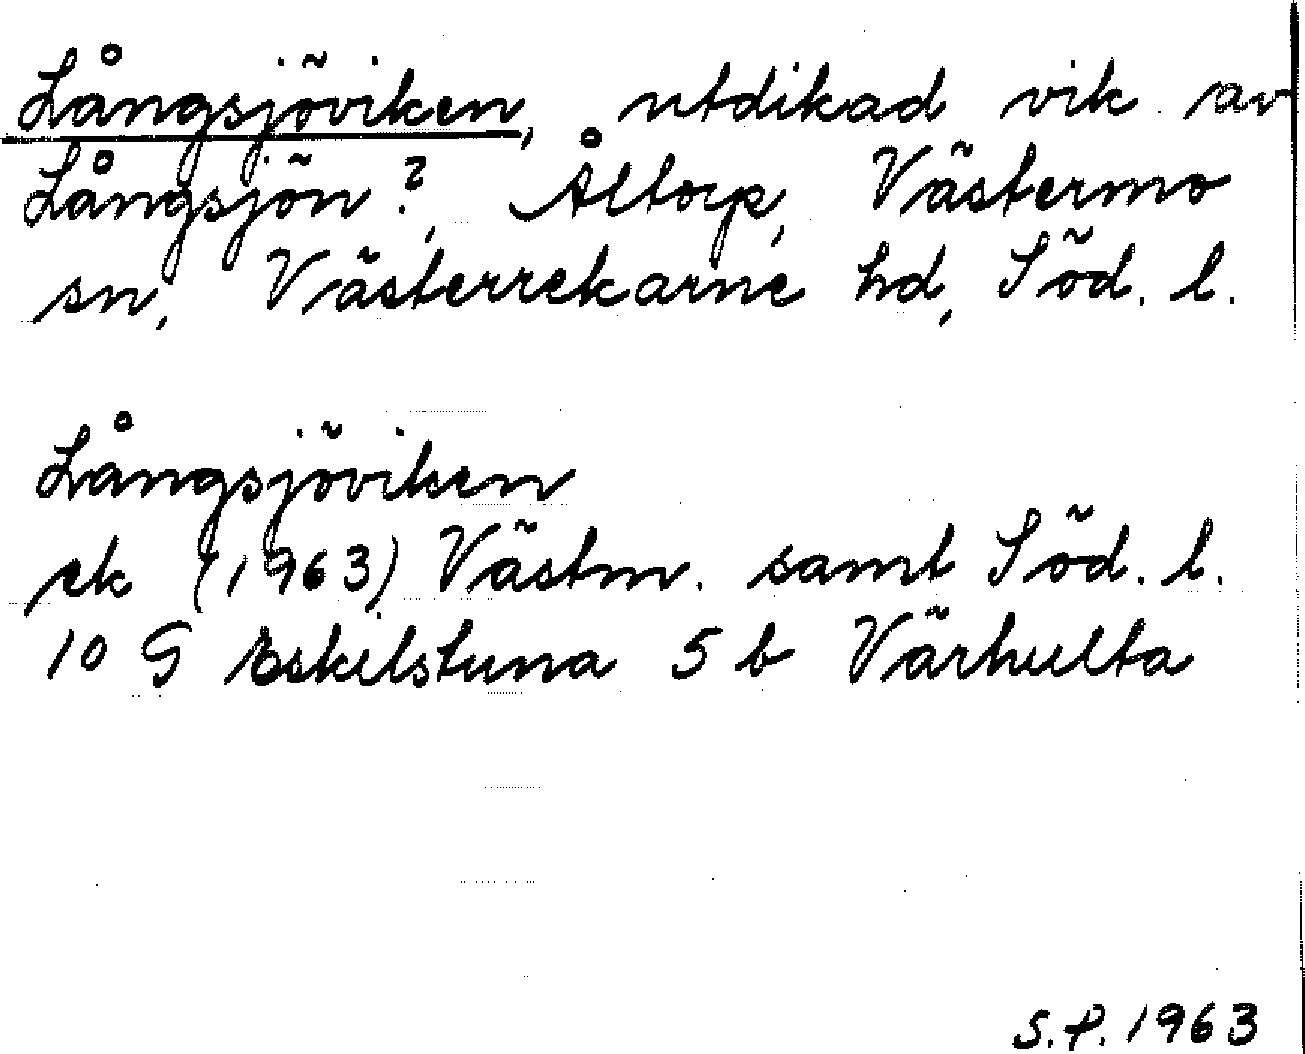 Långsjöviken, utdikad vik av
Långsjön?, Åltorp, Västermo
sn, Västerrekarne hd, Söd. l.
Långsjöviken
ek (1963) Västm. samt Söd. l.
10 G Eskilstuna 5 b Värhulta
S.P. 1963